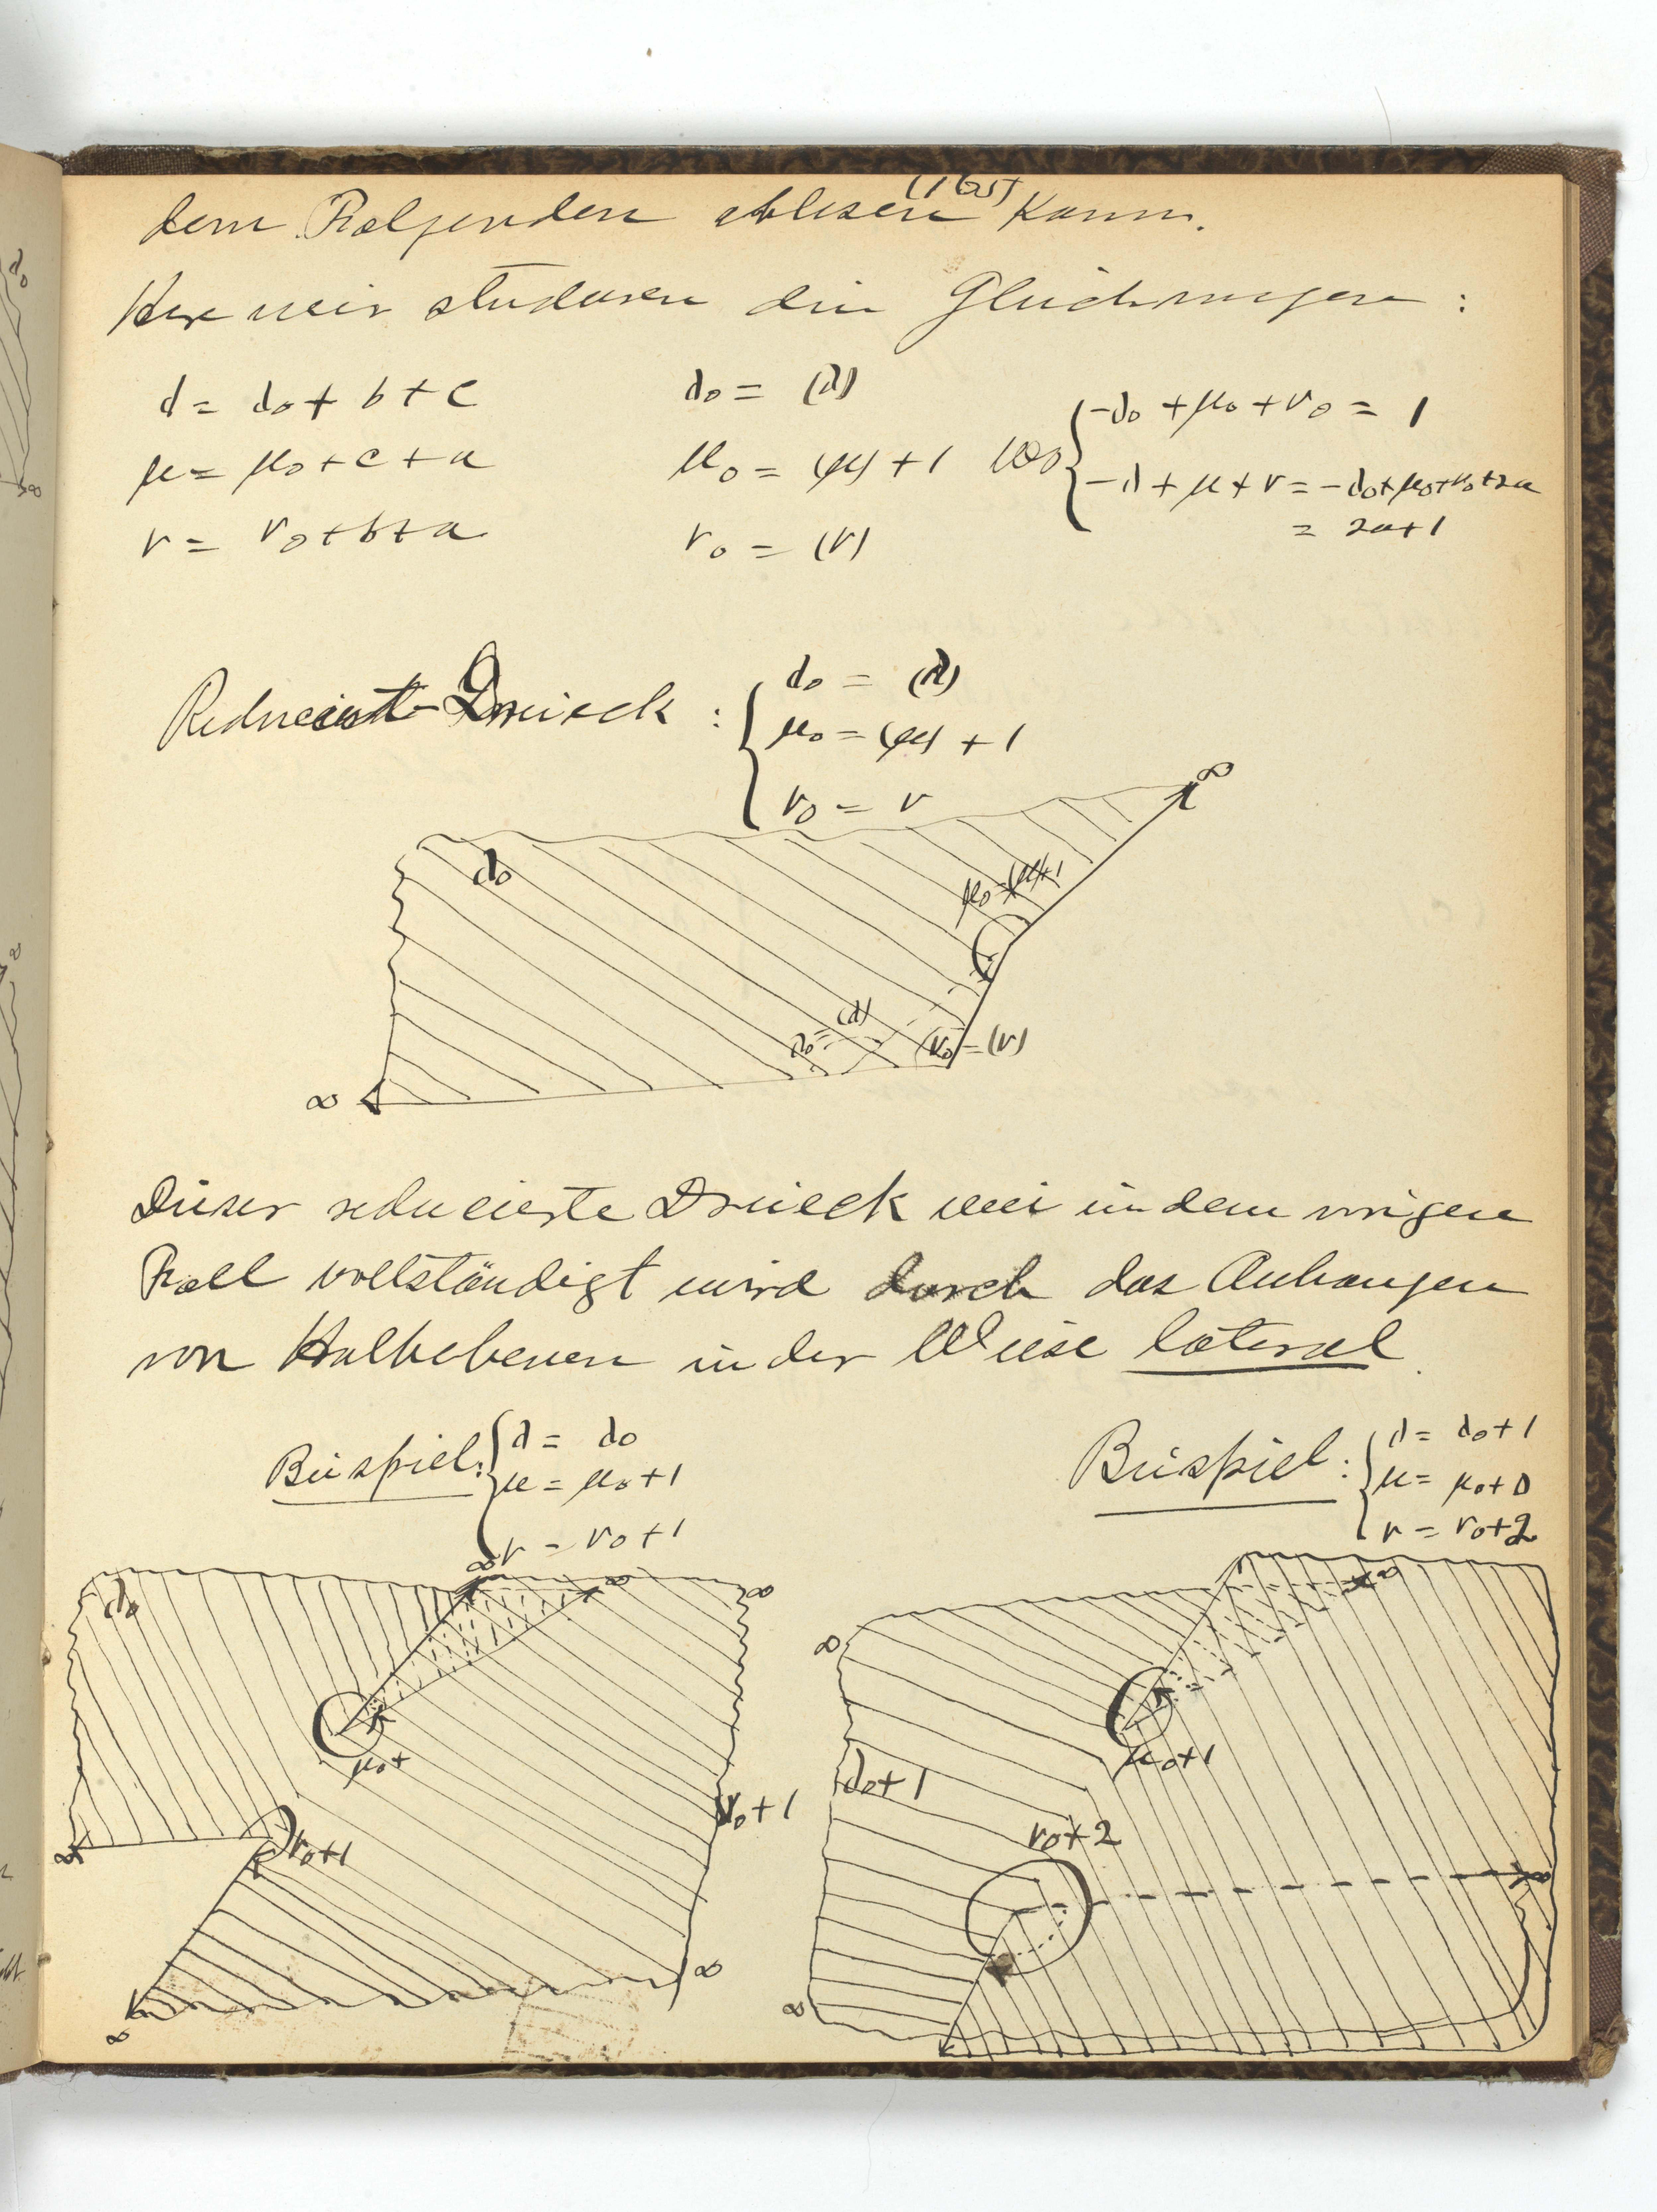 dem Folgenden ablesen kann.
Hier wir studieren die Gleichungen :
λ = λ₀ + b + c
λ₀ = (λ)
{ -λ₀ + μ₀ + ν₀ = 1
μ = μ₀ + c + a
μ₀ = (μ) + 1 wo
-λ + μ + ν = -λ₀+μ₀+ν₀+2a
ν = ν₀ + b + a
ν₀ = (ν)
= 2a+1
Reduciert-Dreieck : { λ₀ = (λ)
μ₀ = (μ) + 1
ν₀ = ν
∞
λ₀
μ₀=(μ)+1
λ₀=(λ)
ν₀=(ν)
∞
Dieser reducierte Dreieck wie in dem vorigen
Fall vollständigt wird durch das Anhangen
von Halbebenen in der Weise lateral.
Beispiel: { λ = λ₀
μ = μ₀+1
ν = ν₀+1
Beispiel: { λ = λ₀+1
μ = μ₀+0
ν = ν₀+2
∞
∞
∞
λ₀
μ₀+
ν₀+1
∞
ν₀+1
∞
∞
∞
∞
μ₀+1
λ₀+1
ν₀+2
∞
∞